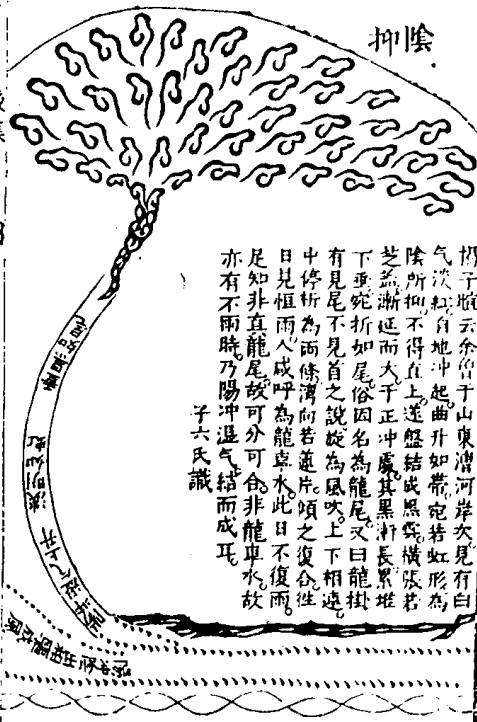 陰抑
揭子暄云余魯于山東漕河岸次見有白
气淡紅自地冲起曲升如帶宛若虹形為
陰所抑不得直上遂盤結成黑雲橫張若
芝蓋漸延而大于正冲處其黑漸長累堆
下垂蛇折如尾俗因名為龍尾又曰龍掛
有見尾不見首之說旋為風吹上下相違
中停折為兩條灣向若蓮片頃之復合往
日見恒雨人咸呼為龍車水此日不復雨
足知非真龍尾故可分可合非龍車水故
亦有不雨時乃陽冲濕气結而成耳
子六氏識
如虹
气上升